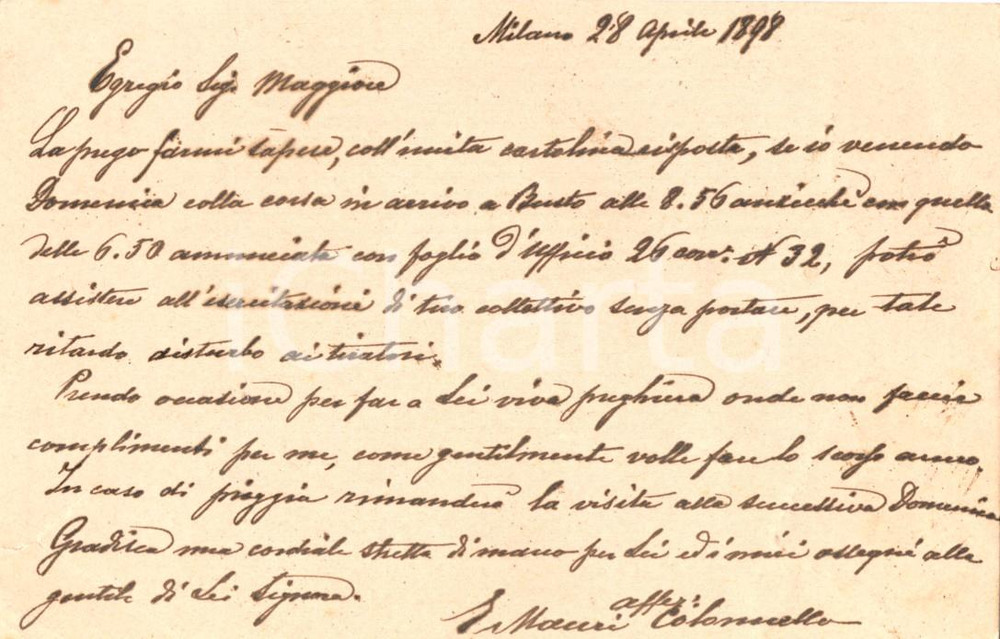 Milano 28 Aprile 1898
Egregio Sigr Maggiore
La prego farmi sapere, coll'unita cartolina risposta, se io venendo
Domenica colla corsa in arrivo a Busto alle 8.56 anzicchè con quella
delle 6.50 annunciata con foglio d'Ufficio 26 corr. N 32, potrò
assistere all'esercitazione di tiro collettivo senza portare, per tale
ritardo disturbo ai tiratori.
Prendo occasione per far a Lei viva preghiera onde non faccia
complimenti per me, come gentilmente volle fare lo scorso anno.
In caso di pioggia rimanderò la visita alla successiva Domenica
Gradisca una cordiale stretta di mano per Lei ed i miei ossequi alla
gentile di Lei Signora.
affez:
E Mauri Colonnello
iCharta